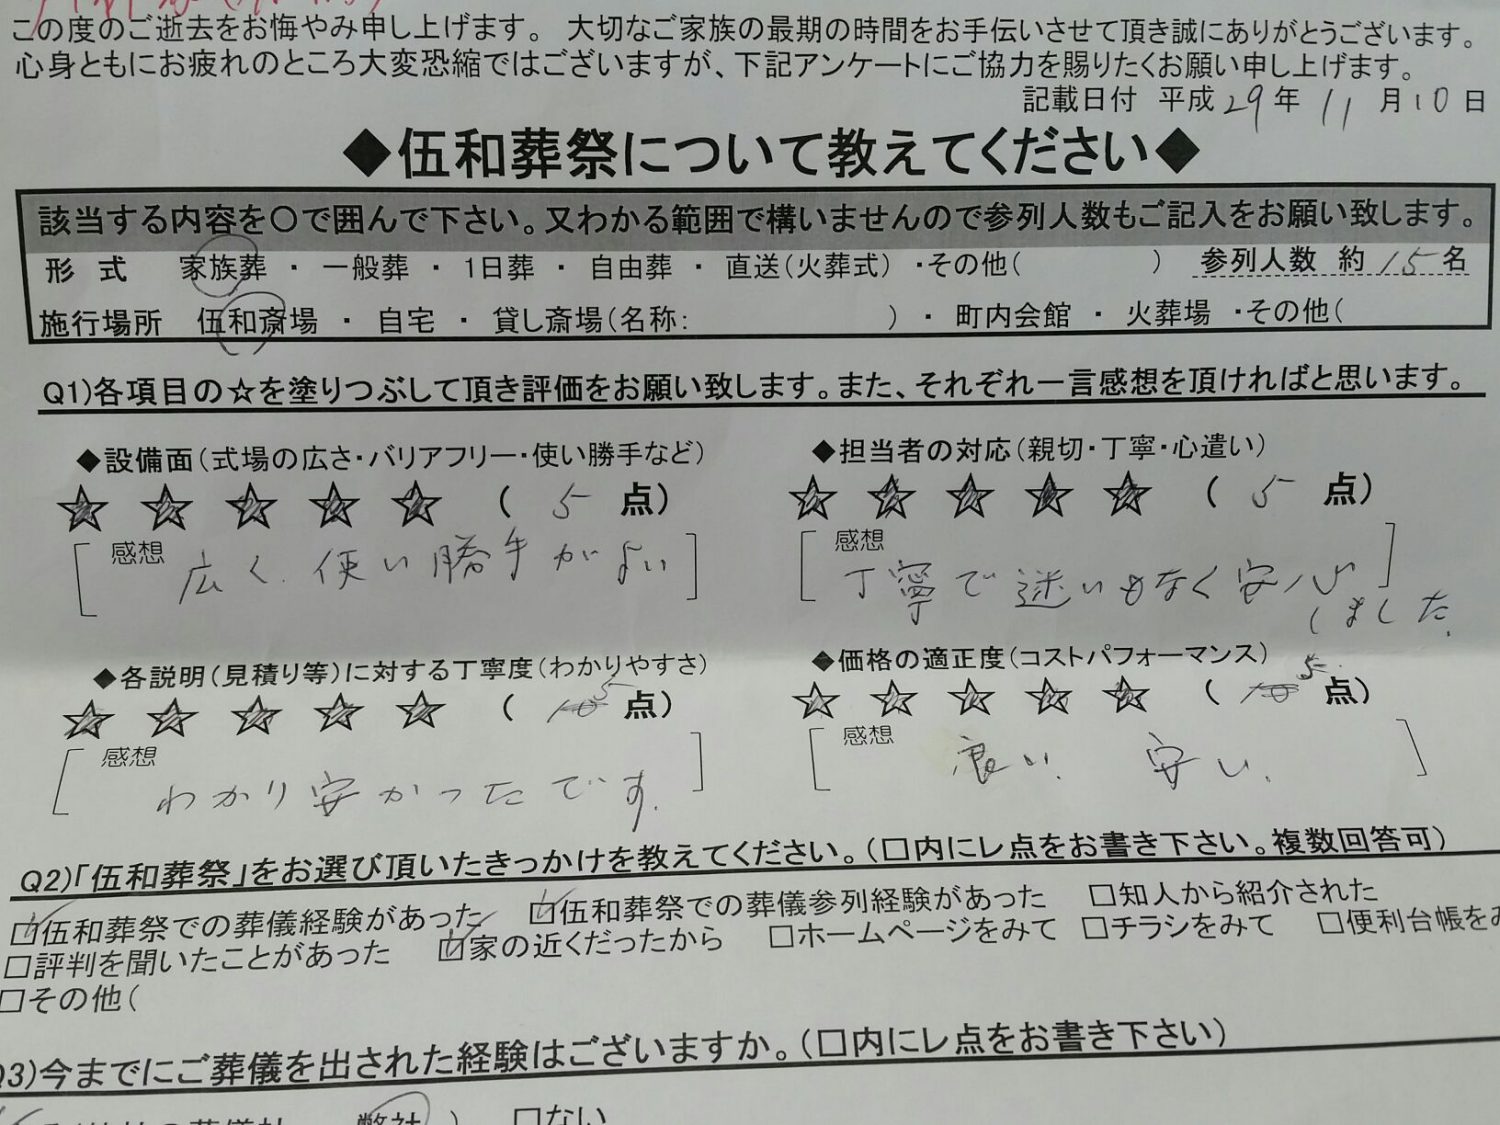 この度のご逝去をお悔やみ申し上げます。 大切なご家族の最期の時間をお手伝いさせて頂き誠にありがとうございます。
心身ともにお疲れのところ大変恐縮ではございますが、下記アンケートにご協力を賜りたくお願い申し上げます。
記載日付 平成 29 年 11 月 10 日
◆伍和葬祭について教えてください◆
該当する内容を〇で囲んで下さい。又わかる範囲で構いませんので参列人数もご記入をお願い致します。
形 式 家族葬 ・ 一般葬 ・ 1日葬 ・ 自由葬 ・ 直送(火葬式) ・その他( ) 参列人数 約 15 名
施行場所 伍和斎場 ・ 自宅 ・ 貸し斎場(名称: ) ・ 町内会館 ・ 火葬場 ・その他(
Q1)各項目の☆を塗りつぶして頂き評価をお願い致します。また、それぞれ一言感想を頂ければと思います。
◆設備面(式場の広さ・バリアフリー・使い勝手など)
★★★★★ ( 5 点)
感想 広く、使い勝手がよい
◆担当者の対応(親切・丁寧・心遣い)
★★★★★ ( 5 点)
感想 丁寧で迷いもなく安心
しました。
◆各説明(見積り等)に対する丁寧度(わかりやすさ)
★★★★★ ( 5 点)
感想 わかり安かったです。
◆価格の適正度(コストパフォーマンス)
★★★★★ ( 5 点)
感想 良い、 安い。
Q2)「伍和葬祭」をお選び頂いたきっかけを教えてください。(□内にレ点をお書き下さい。複数回答可)
☑伍和葬祭での葬儀経験があった ☑伍和葬祭での葬儀参列経験があった □知人から紹介された
□評判を聞いたことがあった ☑家の近くだったから □ホームページをみて □チラシをみて □便利台帳をみ
□その他(
Q3)今までにご葬儀を出された経験はございますか。(□内にレ点をお書き下さい)
弊社 ) □ない